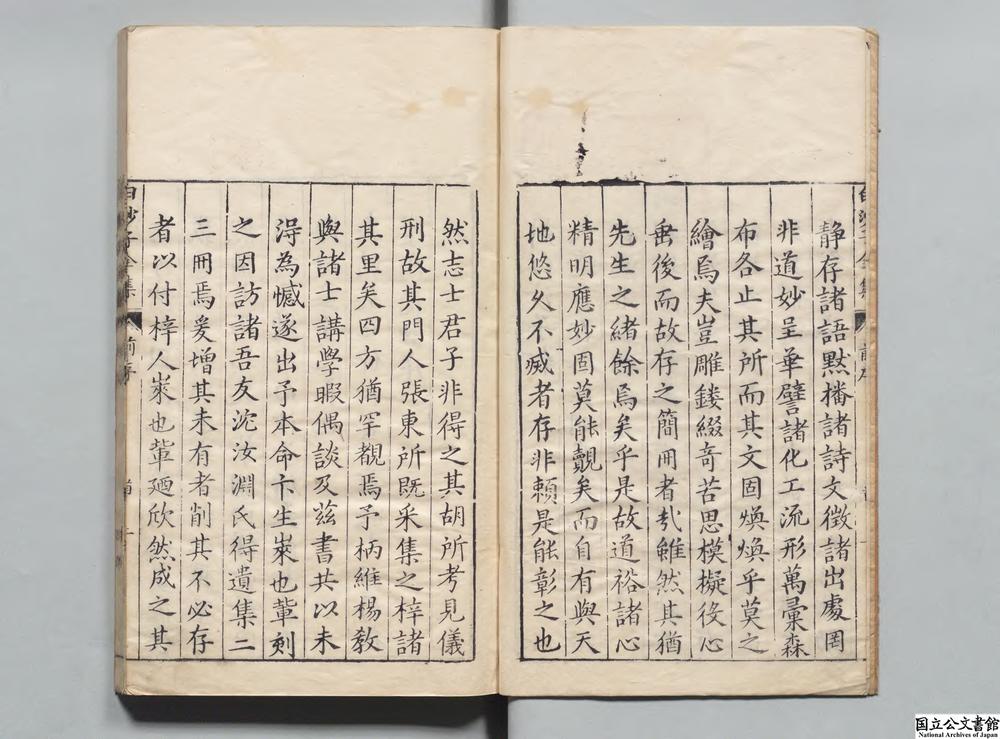 静存諸語黙播諸詩文徴諸出處罔
非道妙呈華譬諸化工流形萬彚森
布各止其所而其文固煥煥乎莫之
繪焉夫豈雕鏤綴竒苦思模擬役心
垂後而故存之簡冊者㢤雖然其猶
先生之緒餘焉矣乎是故道裕諸心
精明應妙固莫能覿矣而自有與天
地悠久不㓕者存非頼是能彰之也
白沙子全集
前序
然志士君子非得之其胡所考見儀
刑故其門人張東所既采集之梓諸
其里矣四方猶罕覩焉予柄維楊敎
與諸士講學暇偶談及茲書共以未
淂為憾遂出予本命卞生崍也軰刻
之因訪諸吾友沱汝淵氏得遺集二
三冊焉爰增其未有者削其不必存
者以付梓人崍也軰廼欣然成之其
白沙子全集
前序
国立公文書館
National Archives of Japan